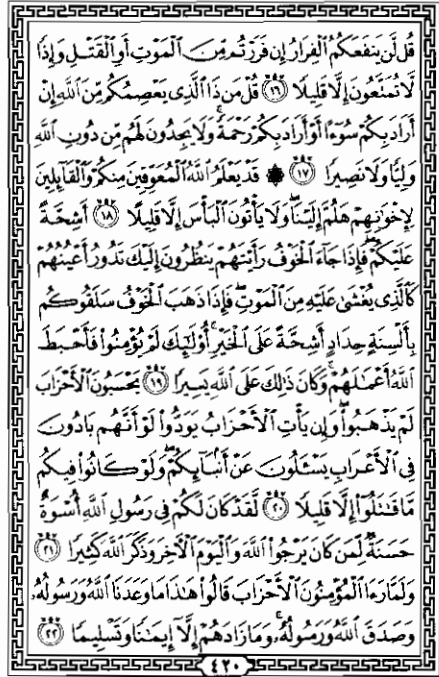 قُل لَّن يَنفَعَكُمُ ٱلْفِرَارُ إِن فَرَرْتُم مِّنَ ٱلْمَوْتِ أَوِ ٱلْقَتْلِ وَإِذًا
لَّا تُمَتَّعُونَ إِلَّا قَلِيلًا ١٦ قُلْ مَن ذَا ٱلَّذِى يَعْصِمُكُم مِّنَ ٱللَّهِ إِنْ
أَرَادَ بِكُمْ سُوٓءًا أَوْ أَرَادَ بِكُمْ رَحْمَةً ۚ وَلَا يَجِدُونَ لَهُم مِّن دُونِ ٱللَّهِ
وَلِيًّا وَلَا نَصِيرًا ١٧ ۞ قَدْ يَعْلَمُ ٱللَّهُ ٱلْمُعَوِّقِينَ مِنكُمْ وَٱلْقَآئِلِينَ
لِإِخْوَٰنِهِمْ هَلُمَّ إِلَيْنَا ۖ وَلَا يَأْتُونَ ٱلْبَأْسَ إِلَّا قَلِيلًا ١٨ أَشِحَّةً
عَلَيْكُمْ ۖ فَإِذَا جَآءَ ٱلْخَوْفُ رَأَيْتَهُمْ يَنظُرُونَ إِلَيْكَ تَدُورُ أَعْيُنُهُمْ
كَٱلَّذِى يُغْشَىٰ عَلَيْهِ مِنَ ٱلْمَوْتِ ۖ فَإِذَا ذَهَبَ ٱلْخَوْفُ سَلَقُوكُم
بِأَلْسِنَةٍ حِدَادٍ أَشِحَّةً عَلَى ٱلْخَيْرِ ۚ أُو۟لَٰٓئِكَ لَمْ يُؤْمِنُوا۟ فَأَحْبَطَ
ٱللَّهُ أَعْمَٰلَهُمْ ۚ وَكَانَ ذَٰلِكَ عَلَى ٱللَّهِ يَسِيرًا ١٩ يَحْسَبُونَ ٱلْأَحْزَابَ
لَمْ يَذْهَبُوا۟ ۖ وَإِن يَأْتِ ٱلْأَحْزَابُ يَوَدُّوا۟ لَوْ أَنَّهُم بَادُونَ
فِى ٱلْأَعْرَابِ يَسْـَٔلُونَ عَنْ أَنۢبَآئِكُمْ ۖ وَلَوْ كَانُوا۟ فِيكُم
مَّا قَٰتَلُوٓا۟ إِلَّا قَلِيلًا ٢٠ لَّقَدْ كَانَ لَكُمْ فِى رَسُولِ ٱللَّهِ أُسْوَةٌ
حَسَنَةٌ لِّمَن كَانَ يَرْجُوا۟ ٱللَّهَ وَٱلْيَوْمَ ٱلْءَاخِرَ وَذَكَرَ ٱللَّهَ كَثِيرًا ٢١
وَلَمَّا رَءَا ٱلْمُؤْمِنُونَ ٱلْأَحْزَابَ قَالُوا۟ هَٰذَا مَا وَعَدَنَا ٱللَّهُ وَرَسُولُهُۥ
وَصَدَقَ ٱللَّهُ وَرَسُولُهُۥ ۚ وَمَا زَادَهُمْ إِلَّآ إِيمَٰنًا وَتَسْلِيمًا ٢٢
٤٢٠